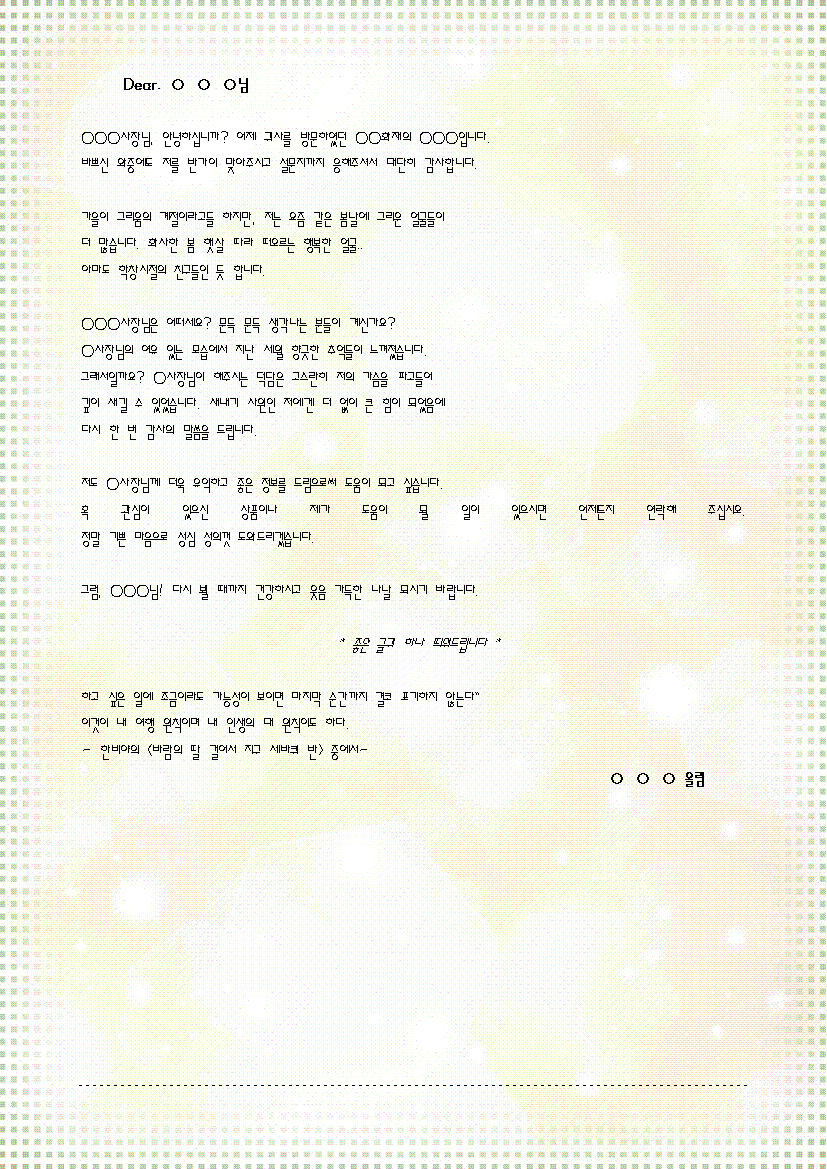 Dear. ○ ○ ○님
○○○사장님, 안녕하십니까? 어제 귀사를 방문하였던 ○○화재의 ○○○입니다.
바쁘신 와중에도 저를 반가이 맞아주시고 설문지까지 응해주셔서 대단히 감사합니다.
가을이 그리움의 계절이라고들 하지만, 저는 요즘 같은 봄날에 그리운 얼굴들이
더 많습니다. 화사한 봄 햇살 따라 떠오르는 행복한 얼굴..
아마도 학창시절의 친구들인 듯 합니다.
○○○사장님은 어떠세요? 문득 문득 생각나는 분들이 계신가요?
○사장님의 여유 있는 모습에서 지난 세월 향긋한 추억들이 느껴졌습니다.
그래서일까요? ○사장님이 해주시는 덕담은 고스란히 저의 가슴을 파고들어
깊이 새길 수 있었습니다. 새내기 사원인 저에겐 더 없이 큰 힘이 되었음에
다시 한 번 감사의 말씀을 드립니다.
저도 ○사장님께 더욱 유익하고 좋은 정보를 드림으로써 도움이 되고 싶습니다.
혹 관심이 있으신 상품이나 제가 도움이 될 일이 있으시면 언제든지 연락해 주십시오.
정말 기쁜 마음으로 성심 성의껏 도와드리겠습니다.
그럼, ○○○님! 다시 뵐 때까지 건강하시고 웃음 가득한 나날 되시기 바랍니다.
* 좋은 글귀 하나 띄워드립니다 *
하고 싶은 일에 조금이라도 가능성이 보이면 마지막 순간까지 결코 포기하지 않는다"
이것이 내 여행 원칙이며 내 인생의 대 원칙이도 하다.
- 한비야의 <바람의 딸 걸어서 지구 세바퀴 반> 중에서-
○ ○ ○ 올림